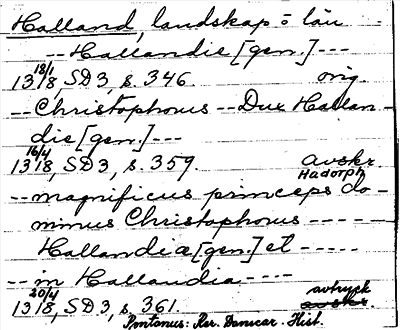 Halland, landskap o län
-- Hallandie [gen.] ---
13 18/1 18, SD3, s. 346. orig.
-- Christophorus -- Dux Hallan-
die [gen.] ---
13 16/4 18, SD3, s. 359. avskr. Hadorph
-- magnificus princeps do-
minus Christophorus -----
Hallandiæ [gen.] et -----
-- in Hallandia ----
13 20/4 18, SD3, s. 361. avtryck avskr.
Pontanus: Rer. Danicar. Hist.